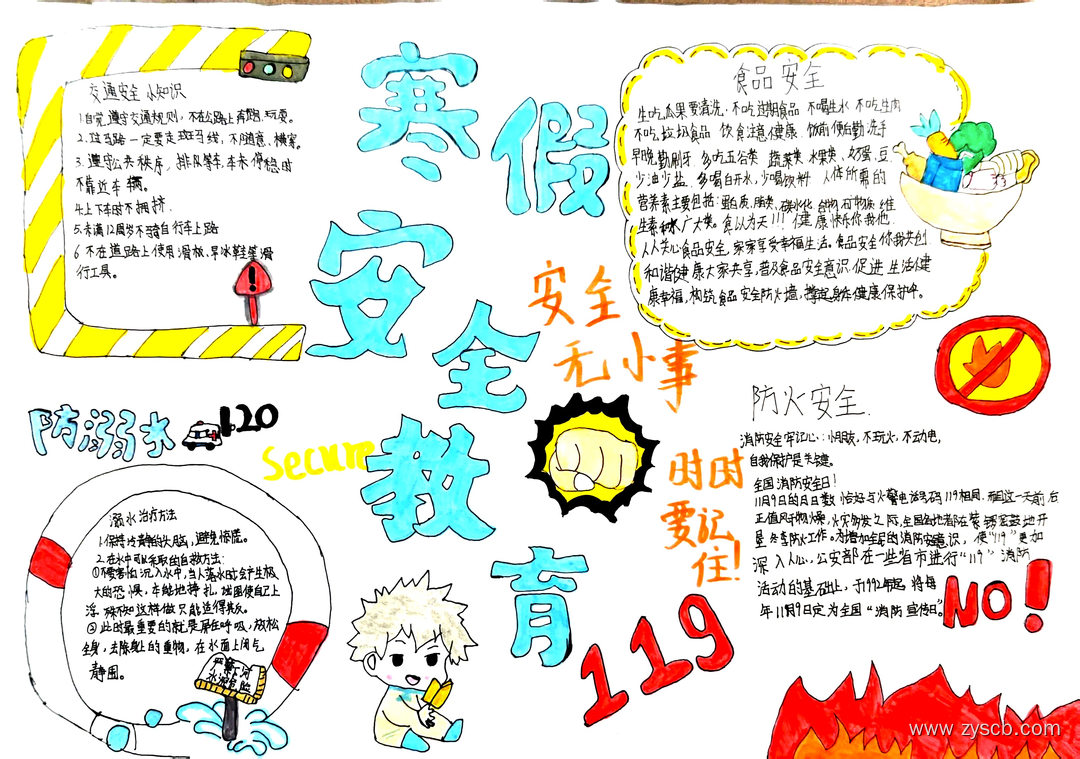 寒假
安全
教育
安全
无小事
时时
要记
住!
Secure
119
交通安全小知识
1.自觉遵守交通规则,不在公路上奔跑,玩耍。
2.过马路一定要走斑马线,不随意横穿。
3.遵守公共秩序,排队等车,车未停稳时
不靠近车辆。
4.上下车时不拥挤.
5.未满12周岁不骑自行车上路
6.不在道路上使用滑板,旱冰鞋等滑
行工具。
食品安全
生吃瓜果要清洗.不吃过期食品 不喝生水 不吃生肉
不吃垃圾食品 饮食注意健康 饭前便后勤洗手
早晚勤刷牙 多吃五谷类 蔬菜类 水果类,奶蛋,豆
少油少盐.多喝白开水,少喝饮料 人体所需的
营养素主要包括:蛋白质.脂类.碳水化合物 矿物质 维
生素和水广大类。食以为天!!!健康快乐你我他
人人关心食品安全,家家享受幸福生活.食品安全你我共创
和谐健康大家共享,普及食品安全意识,促进生活健
康幸福,构筑食品安全防火墙,撑起身体健康保护伞。
防溺水 120
溺水治疗方法
1.保持冷静的头脑,避免惊慌。
2.在水中可采取的自救方法:
①不要害怕沉入水中,当人落水时会产生极
大的恐惧,本能地挣扎,试图使自己上
浮,殊不知这样做只能适得其反。
②此时最重要的就是屏住呼吸,放松
全身,去除身上的重物,在水面上闭气
静围。
严禁下河
水深危险
防火安全.
消防安全牢记心:小朋友,不玩火,不动电,
自我保护是关键。
全国消防安全日!
11月9日的月日数恰好与火警电话号码119相同.而且这一天前后
正值风干物燥,火灾多发之际,全国各地都在紧锣密鼓地开
展冬季防火工作。为增加全民的消防安全意识,使"119"更加
深入人心,公安部在一些省市进行"119"消防
活动的基础上,于1992年起,将每
年11月9日定为全国"消防宣传日"。
NO!
www.zyscb.com